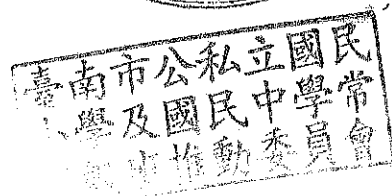 臺南市公私立國民
學及國民中學常
推動委員會